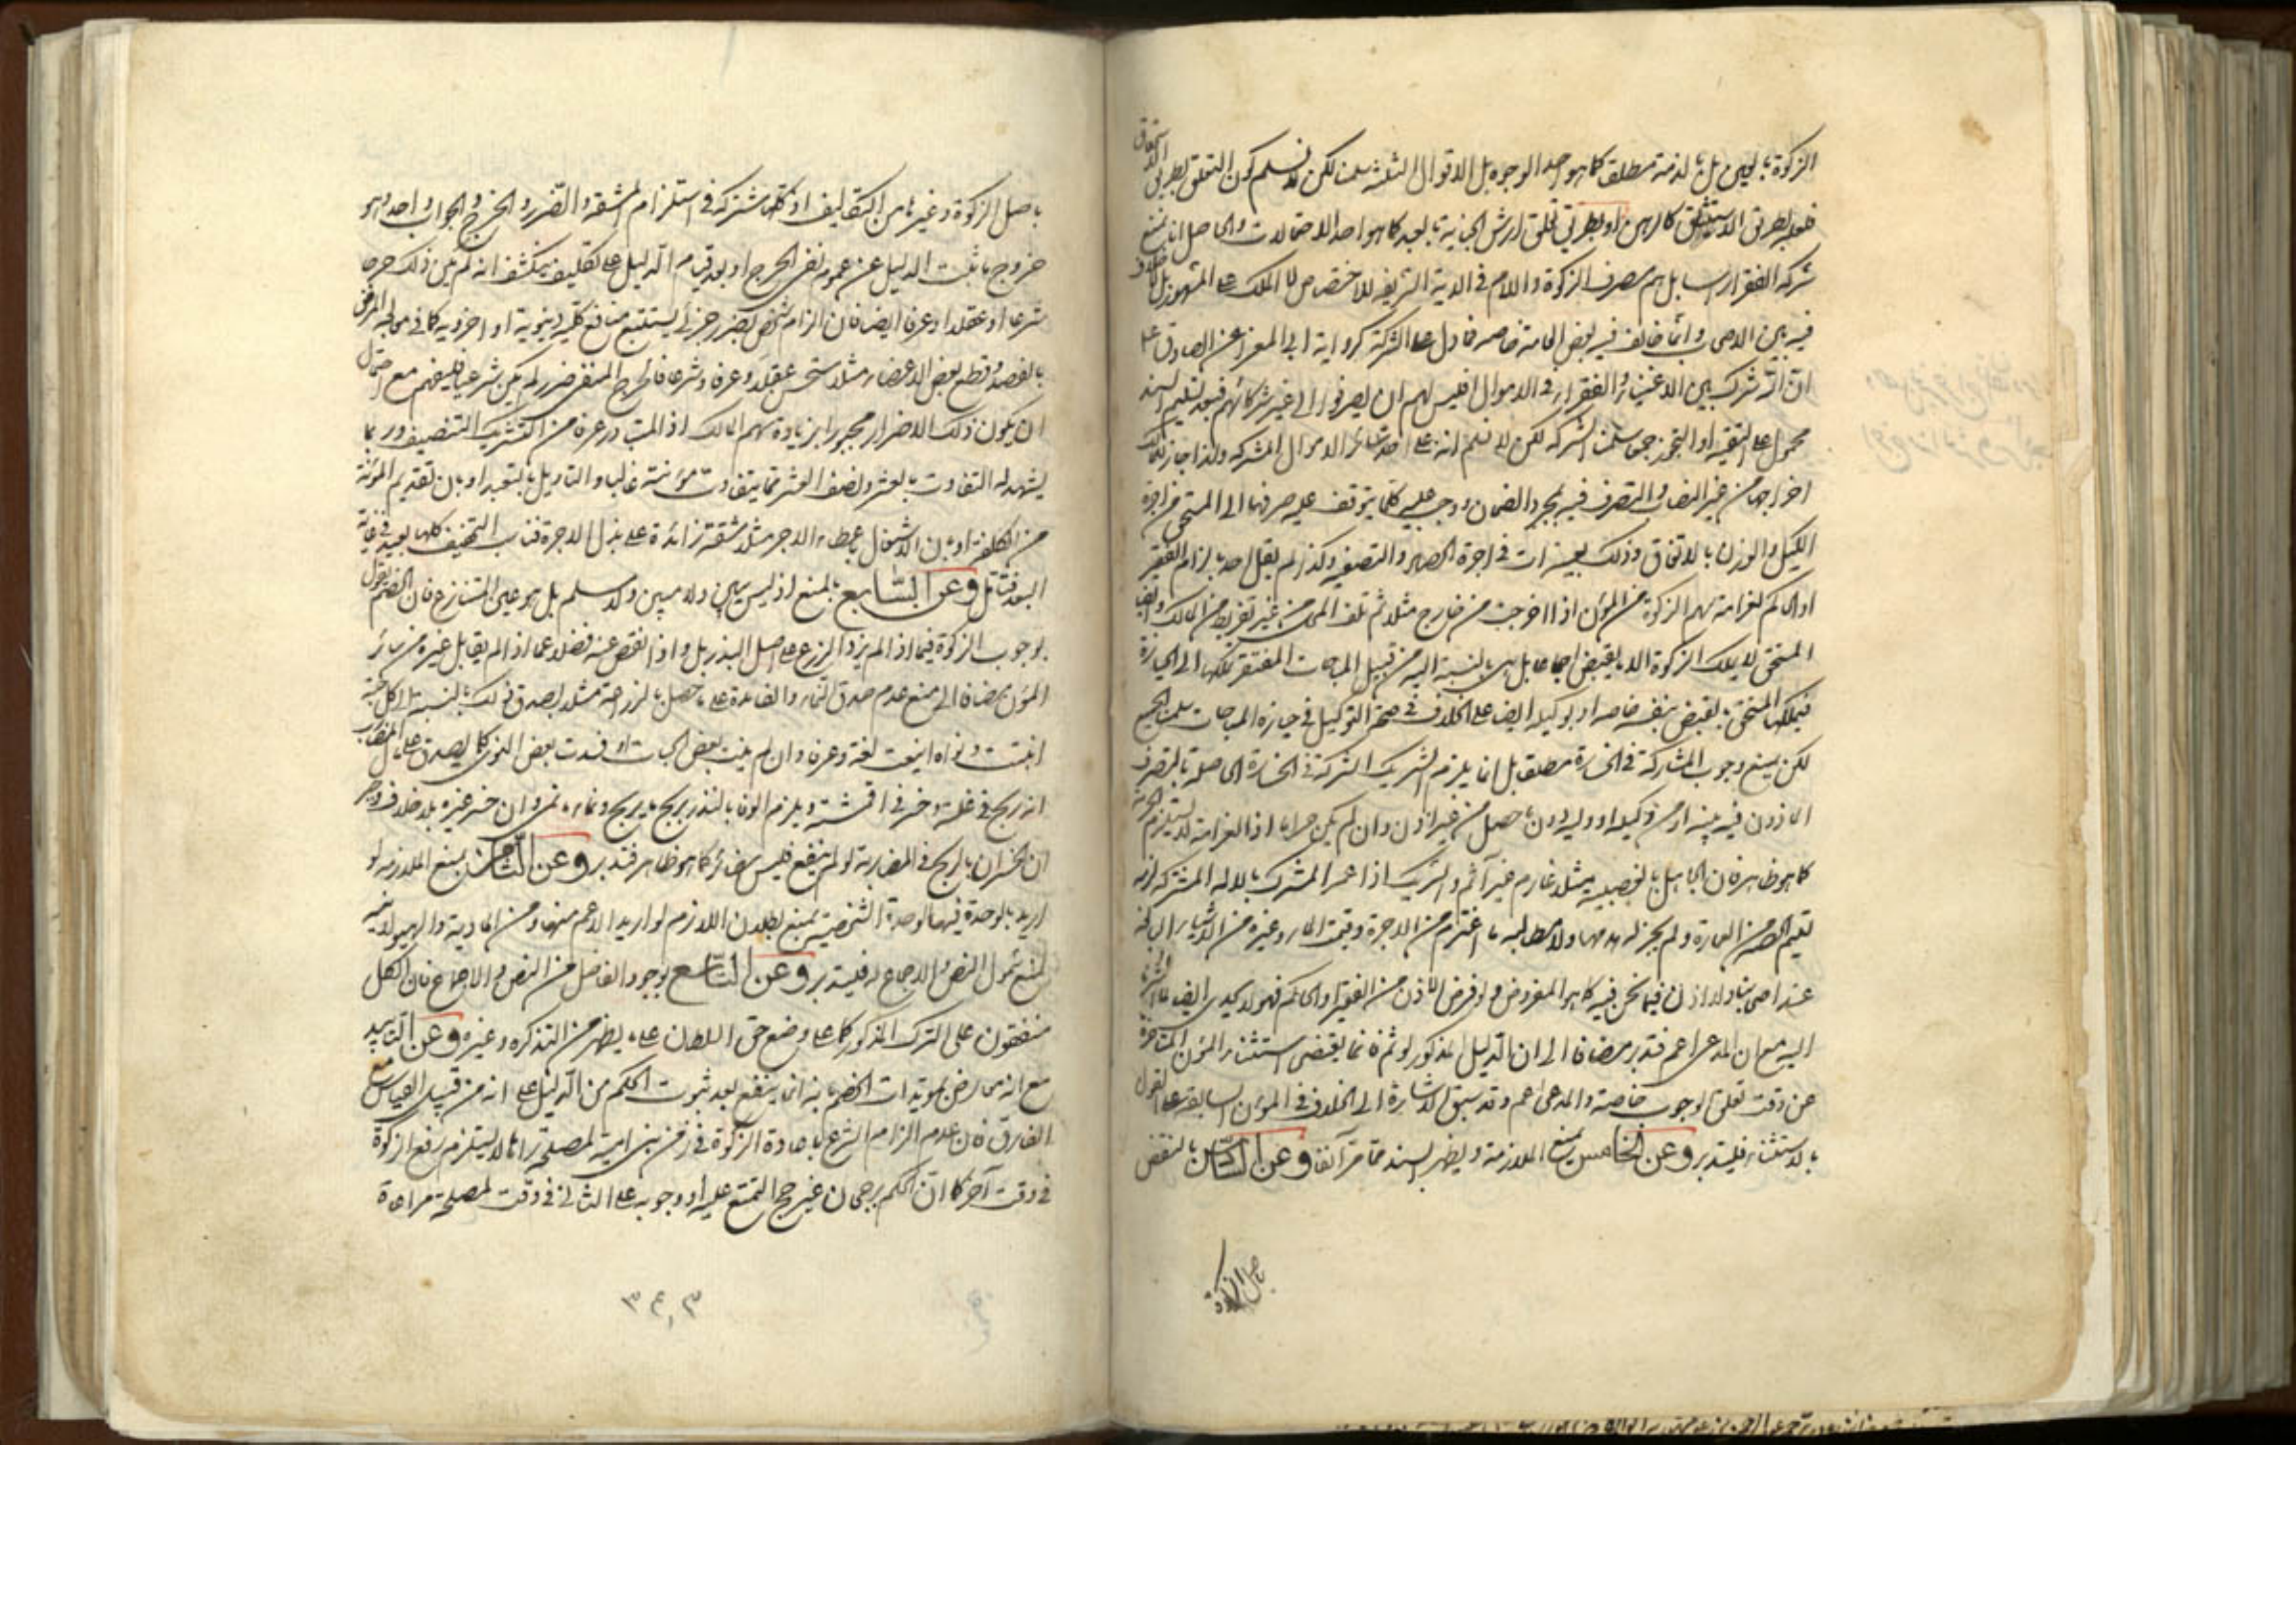 الزكوة بالعين بل بالذمة مطلقا كما هو احد الوجوه بل الاقوال الثلثة سلمنا لكن لا نسلم كون التعلق بطريق الاستحقاق
فلعله بطريق الاستيثاق كالرهن او بطريق تعلق ارش الجناية بالعبد كما هو احد الاحتمالات والحاصل انا نمنع
شركة الفقراء راسا بل هم مصرف الزكوة واللام في الاية الشريفة للاختصاص لا الملك على المشهور بل لا خلاف
فيه بين الاصحاب وانما خالف فيه بعض العامة خاصة فما دل على الشركة كرواية ابي المعزا عن الصادق ع
ان الله شرك بين الاغنياء والفقراء في الاموال فليس لهم ان يصرفوا الى غير شركائهم فبعد تسليم السند
محمول على التقية او التجوز جمعا سلمنا الشركة لكن لا نسلم انه على حد سائر الاموال المشتركة ولذا جاز للمالك
اخراجها من غير النصاب والتصرف فيه بمجرد الضمان ووجب عليه كلما يتوقف عليه صرفها الى المستحق من اجرة
الكيل والوزن بالاتفاق وذلك بعينه ات في اجرة الحصاد والتصفية وكذا لم يقل احد بالزام الفقير
او الحاكم لغرامة سهم الزكوة من المؤن اذا اخرجت من خارج مثلا ثم تلف المال من غير تفريط من المالك وايضا
المستحق لا يملك الزكوة الا بالقبض اجماعا بل هي بالنسبة اليه من قبيل المباحات المفتقر تملكها الى الحيازة
فيملكها المستحق بالقبض بنفسه خاصة او بوكيله ايضا على الخلاف في صحة التوكيل في حيازة المباحات سلمنا الجميع
لكن نمنع وجوب المشاركة في الخسارة مطلقا بل انما يلزم الشريك الشركة في الخسارة الحاصلة بالتصرف
الماذون فيه منه او من وكيله او وليه دون ما حصل من غير اذن وان لم يكن حراما اذ الغرامة لا تستلزم الحرمة
كما هو ظاهر فان الجاهل بالغصبية مثلا غارم غير آثم والشريك اذا عمر المشترك بالاله المشتركة لزمه
تسليم الحصة من العمارة ولم يجز له هدمها ولا مطالبة ما اغترم من الاجرة وقيمة الماء وغيره من الاشياء البالغة
عند اصحابنا ولا اذن فيما نحن فيه كما هو المفروض ولو فرض الاذن من الفقير او الحاكم فهو لا يجدي ايضا
اليه مع ان المدعى اعم فتدبر مضافا الى ان الدليل المذكور لو تم فانما يقتضي استثناء المؤن المتاخرة
عن وقت تعلق الوجوب خاصة والمدعى اعم وقد سبق الاشارة الى الخلاف في المؤن السابقة على القول
بالاستثناء فليتدبر وعن الخامس بمنع الملازمة ويظهر السند مما مر آنفا وعن السادس بالنقض
باصل الزكوة
باصل الزكوة وغيرها من التكاليف اذ كلها مشتركة في استلزام المشقة والضرر والحرج والجواب واحد وهو
خروج ما ثبت بالدليل عن عموم نفي الحرج او بعد قيام الدليل على تكليف ينكشف انه لم يكن ذلك حرجا
شرعا او عقلا او عرفا ايضا فان الزام شخص بضرر جزئي يستتبع منافع كلية دنيوية او اخروية كما في معالجة المرض
بالفصد وقطع بعض الاعضاء مثلا مستحسن عقلا وعرفا وشرعا فالحرج المنفي ضرر لم يكن شرعيا فليفهم مع احتمال
ان يكون ذلك الاضرار مجبورا بزيادة سهم المالك اذ المتبادر عرفا من التشريك التنصيف وربما
يشهد له التفاوت بالعشر ونصف العشر مما يتفاوت مؤنته غالبا والتاويل بالتعبد او بان تقديم المؤنة
من الكلفة او بان الاشتغال باعطاء الاجر مثلا مشقة زائدة على بذل الاجرة فناسب التخفيف كلها بعيد في غاية
البعد فتامل وعن السابع بالمنع اذ ليس ببين ولا مبين ولا مسلم بل هو عين المتنازع فان الخصم يقول
بوجوب الزكوة فيما اذا لم يزد الزرع على اصل البذر بل واذا نقص عنه فضلا عما اذا لم يقابل غيره من سائر
المؤن مضافا الى منع عدم صدق النماء والفائدة على ما حصل بالزراعة مثلا لصدق ذلك بالنسبة الى كل حبة
انبتت ونواة اينعت لغة وعرفا وان لم ينبت بعض الحبات او فسدت بعض النوى كما يصدق على المضارب
انه ربح في غلته وخسر في اقمشته ويلزم الوفا بالنذر بربح ما يربح ونماء ما نمى وان خسر غيره بلا خلاف وجبر
الخسران بالربح في المضاربة لو لم ينفع فليس بضائر كما هو ظاهر فتدبر وعن الثامن بمنع الملازمة لو
اريد بالوحدة فيها الوحدة الشخصية وبمنع بطلان اللازم لو اريد الاعم منها ومن المادية والهيولائية
لمنع شمول النص والاجماع له فليتدبر وعن التاسع بوجود الفاصل من النص والاجماع فان الكل
متفقون على الترك المذكور كما على وضع حق السلطان على ما يظهر من التذكرة وغيره وعن التاييد
مع انه معارض بمويدات الخصم بانه انما ينفع بعد ثبوت الحكم من الدليل على انه من قبيل القياس مع
الفارق فان عدم الزام الشرع باعادة الزكوة في زمن بني امية لمصلحة راها لا يستلزم رفع الزكوة
في وقت آخر كما ان الحكم برجحان غير حج التمتع عليه او وجوبه على الثاني في وقت لمصلحة مراعاة